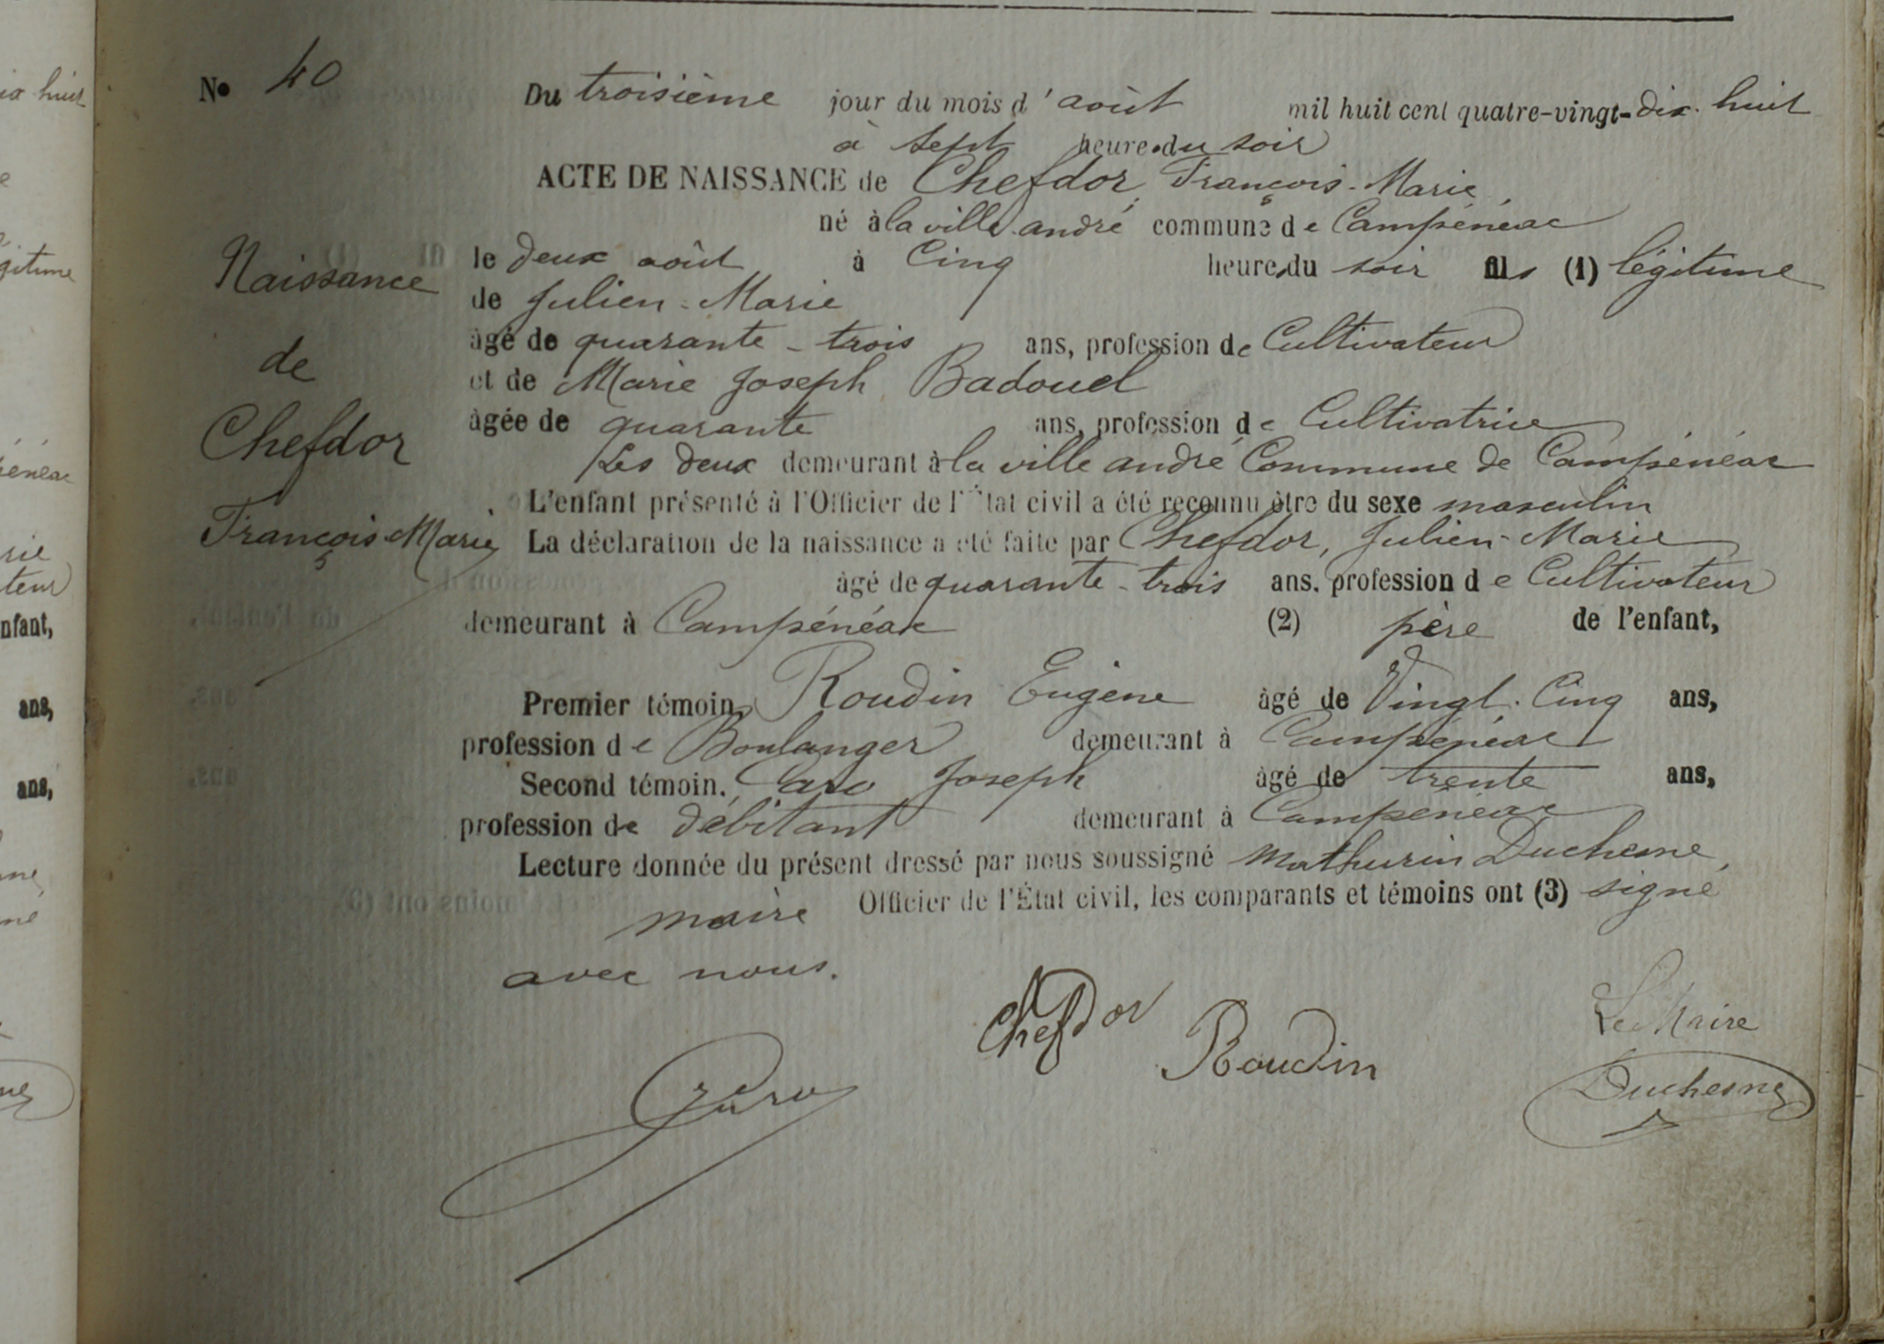 No 40
Du troisième jour du mois d'août mil huit cent quatre-vingt-dix-huit
à sept heures du soir
ACTE DE NAISSANCE de Chefdor, François-Marie
né à la ville andré commune de Campénéac
Naissance
de
Chefdor
François-Marie
le deux août à Cinq heures du soir fils (1) légitime
de Julien-Marie
âgé de quarante-trois ans, profession de Cultivateur
et de Marie Joseph Badouel
âgée de quarante ans, profession de Cultivatrice
Les deux demeurant à la ville andré Commune de Campénéac
L'enfant présenté à l'Officier de l'État civil a été reconnu être du sexe masculin
La déclaration de la naissance a été faite par Chefdor, Julien-Marie
âgé de quarante-trois ans, profession de Cultivateur
demeurant à Campénéac (2) père de l'enfant,
Premier témoin, Roudin Eugène âgé de Vingt-Cinq ans,
profession de Boulanger demeurant à Campénéac
Second témoin, Caro Joseph âgé de trente ans,
profession de débitant demeurant à Campénéac
Lecture donnée du présent dressé par nous soussigné Mathurin Duchesne,
maire Officier de l'État civil, les comparants et témoins ont (3) signé
avec nous.
Chefdor
Roudin
Le Maire
Duchesne
Caro